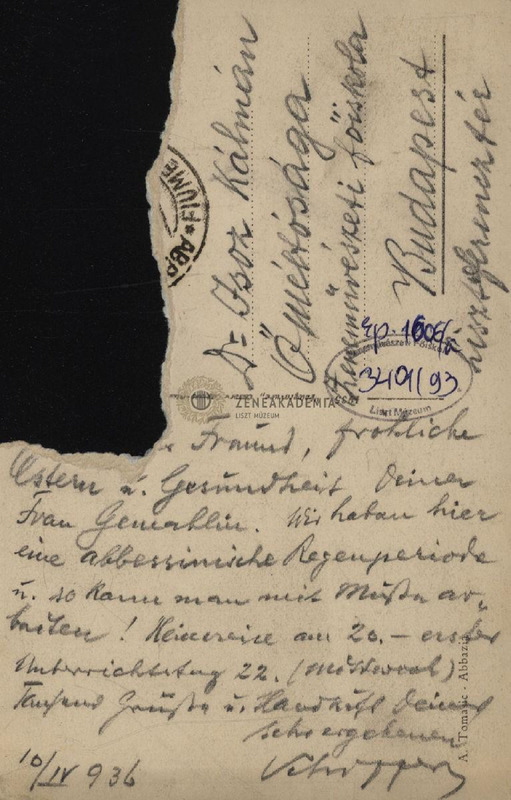 Dr Isoz Kálmán
Őméltósága
Zeneművészeti főiskola
Budapest
Liszt Ferencz tér
FIUME * ABB
Ep. 1606/a
34 01 93.
Liszt Múzeum
ZENEAKADÉMIA
LISZT MÚZEUM
Freund, fröhliche
Ostern u. Gesundheit Deiner
Frau Gemahlin. Wir haben hier
eine abbessinische Regenperiode
u. so kann man mit Muße ar-
beiten! Heimreise am 20. – erster
Unterrichtstag 22. (Mittwoch)
Tausend Grüße u. Handkuß Deines
sehr ergebenen
10/IV 936
A. Tomašić - Abbazia